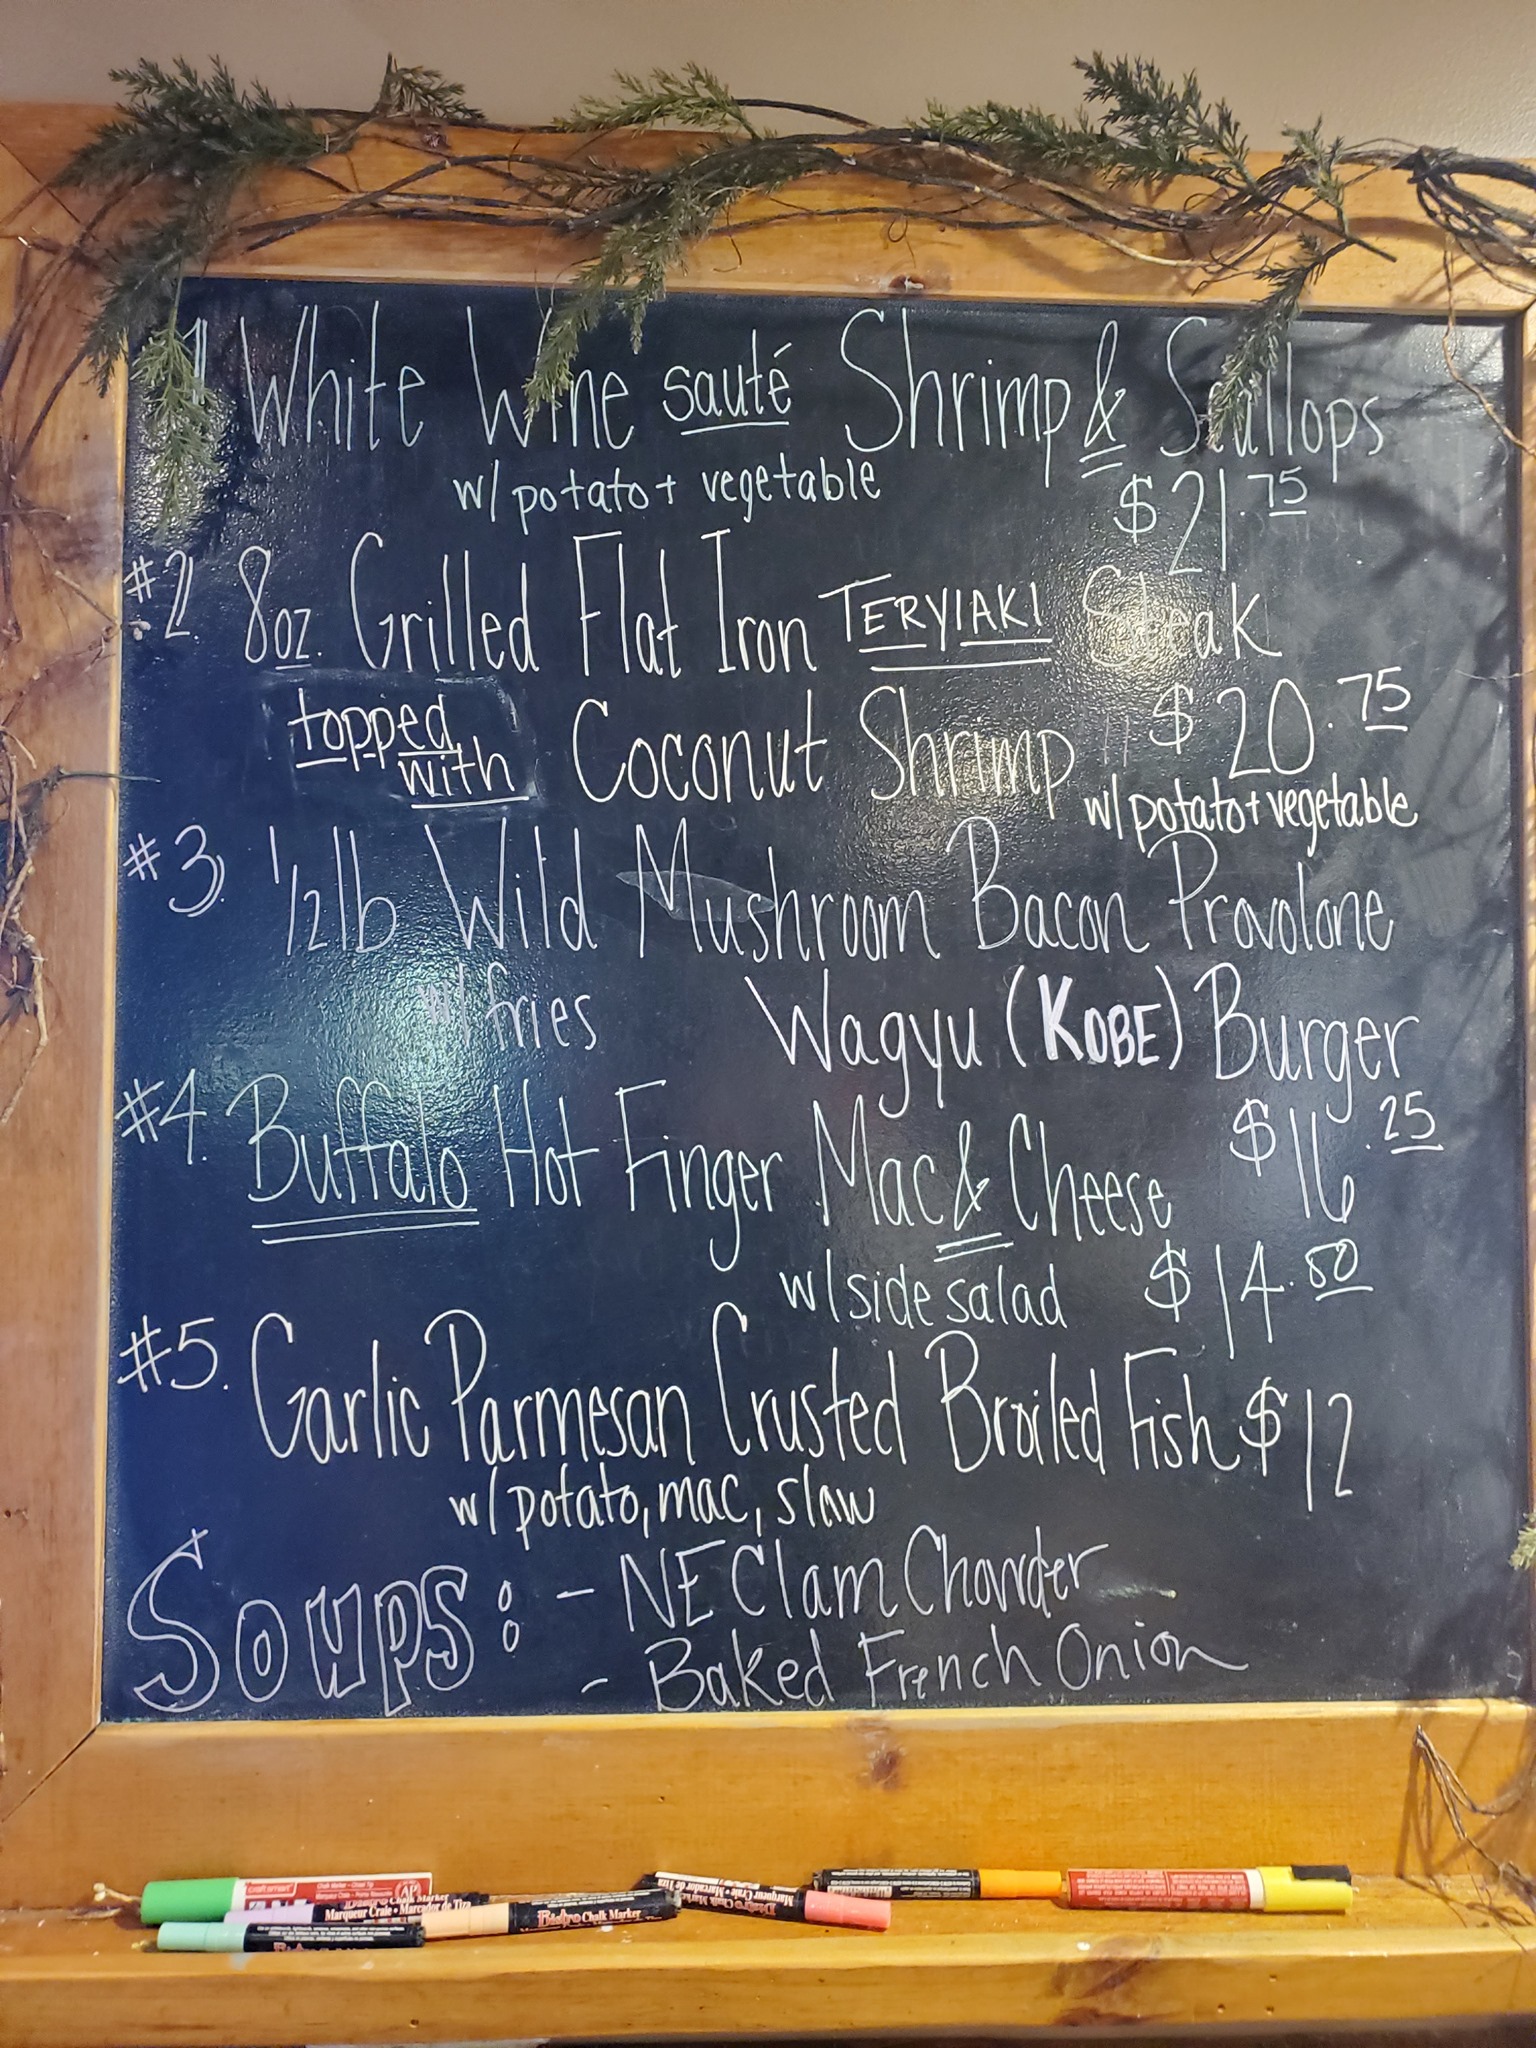 1 White Wine sauté Shrimp & Scallops
w/ potato + vegetable $21.75
#2. 8oz. Grilled Flat Iron TERYIAKI Steak
topped with Coconut Shrimp $20.75
w/ potato + vegetable
#3. 1/2 lb Wild Mushroom Bacon Provolone
w/ fries Wagyu (KOBE) Burger
$16.25
#4. Buffalo Hot Finger Mac & Cheese
w/ side salad $14.50
#5. Garlic Parmesan Crusted Broiled Fish $12
w/ potato, mac, slaw
SOUPS: - NE Clam Chowder
- Baked French Onion
Marqueur Craie • Marcador de Tiza
Bistro Chalk Marker